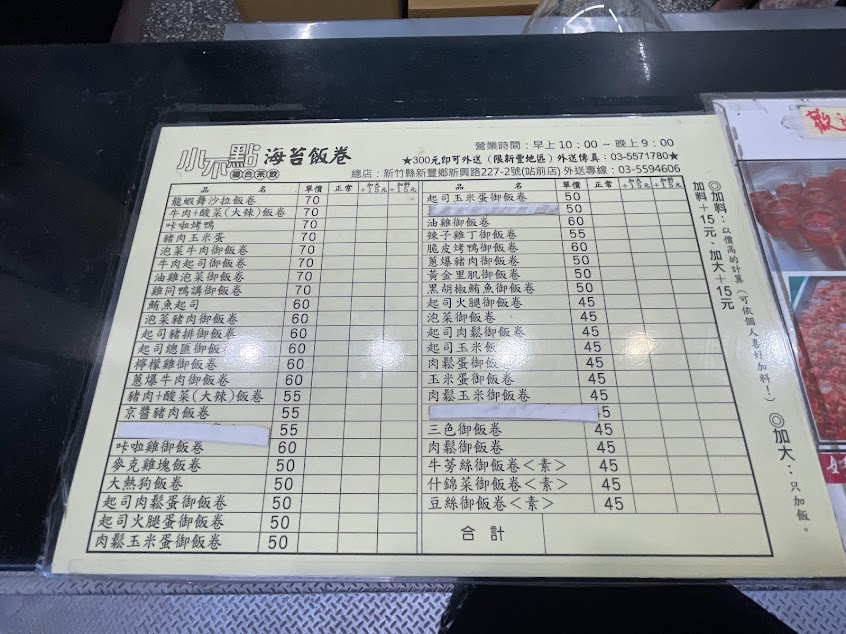 小不點 海苔飯卷
複合茶飲
營業時間：早上10：00～晚上9：00
★300元即可外送（限新豐地區）外送傳真：03-5571780★
總店：新竹縣新豐鄉新興路227-2號(站前店) 外送專線：03-5594606
品名 單價 正常 加大+15元 加料+15元
龍蝦舞沙拉飯卷 70
牛肉+酸菜(大辣)飯卷 70
咔啦烤鴨 70
豬肉玉米蛋 70
泡菜牛肉御飯卷 70
牛肉起司御飯卷 70
油雞泡菜御飯卷 70
雞同鴨講御飯卷 70
鮪魚起司 60
泡菜豬肉御飯卷 60
起司豬排御飯卷 60
起司總匯御飯 60
檸檬雞御飯卷 60
蔥爆牛肉御飯卷 60
豬肉+酸菜(大辣)飯卷 55
京醬豬肉飯卷 55
55
咔啦雞御飯卷 60
麥克雞塊飯卷 50
大熱狗飯卷 50
起司肉鬆蛋御飯卷 50
起司火腿蛋御飯卷 50
肉鬆玉米蛋御飯卷 50
品名 單價 正常 加大+15元 加料+15元
起司玉米蛋御飯卷 50
50
油雞御飯卷 60
辣子雞丁御飯卷 55
脆皮烤鴨御飯卷 60
蔥爆豬肉御飯卷 50
黃金里肌御飯卷 50
黑胡椒鮪魚御飯卷 50
起司火腿御飯卷 45
泡菜御飯卷 45
起司肉鬆御飯卷 45
起司玉米飯 45
肉鬆蛋御飯 45
玉米蛋御飯卷 45
肉鬆玉米御飯卷 45
45
三色御飯卷 45
肉鬆御飯卷 45
牛蒡絲御飯卷＜素＞ 45
什錦菜御飯卷＜素＞ 45
豆絲御飯卷＜素＞ 45
合計
◎加料：以價高的計算（可依個人喜好加料！）
◎加大：只加飯。
加料＋15元、加大＋15元